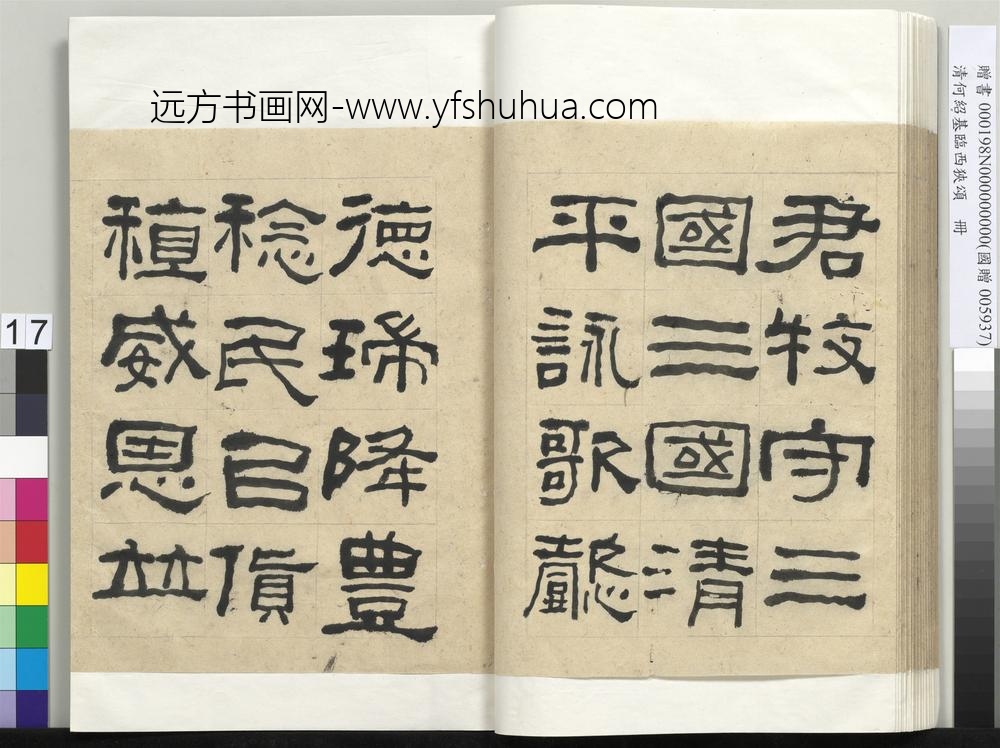 远方书画网-www.yfshuhua.com
贈書 000198N000000000(國贈 005937)
清何紹基臨西狹頌 冊
君牧守三
國三國清
平詠歌懿
德瑞降豐
稔民㠯貨
稙威恩竝
17